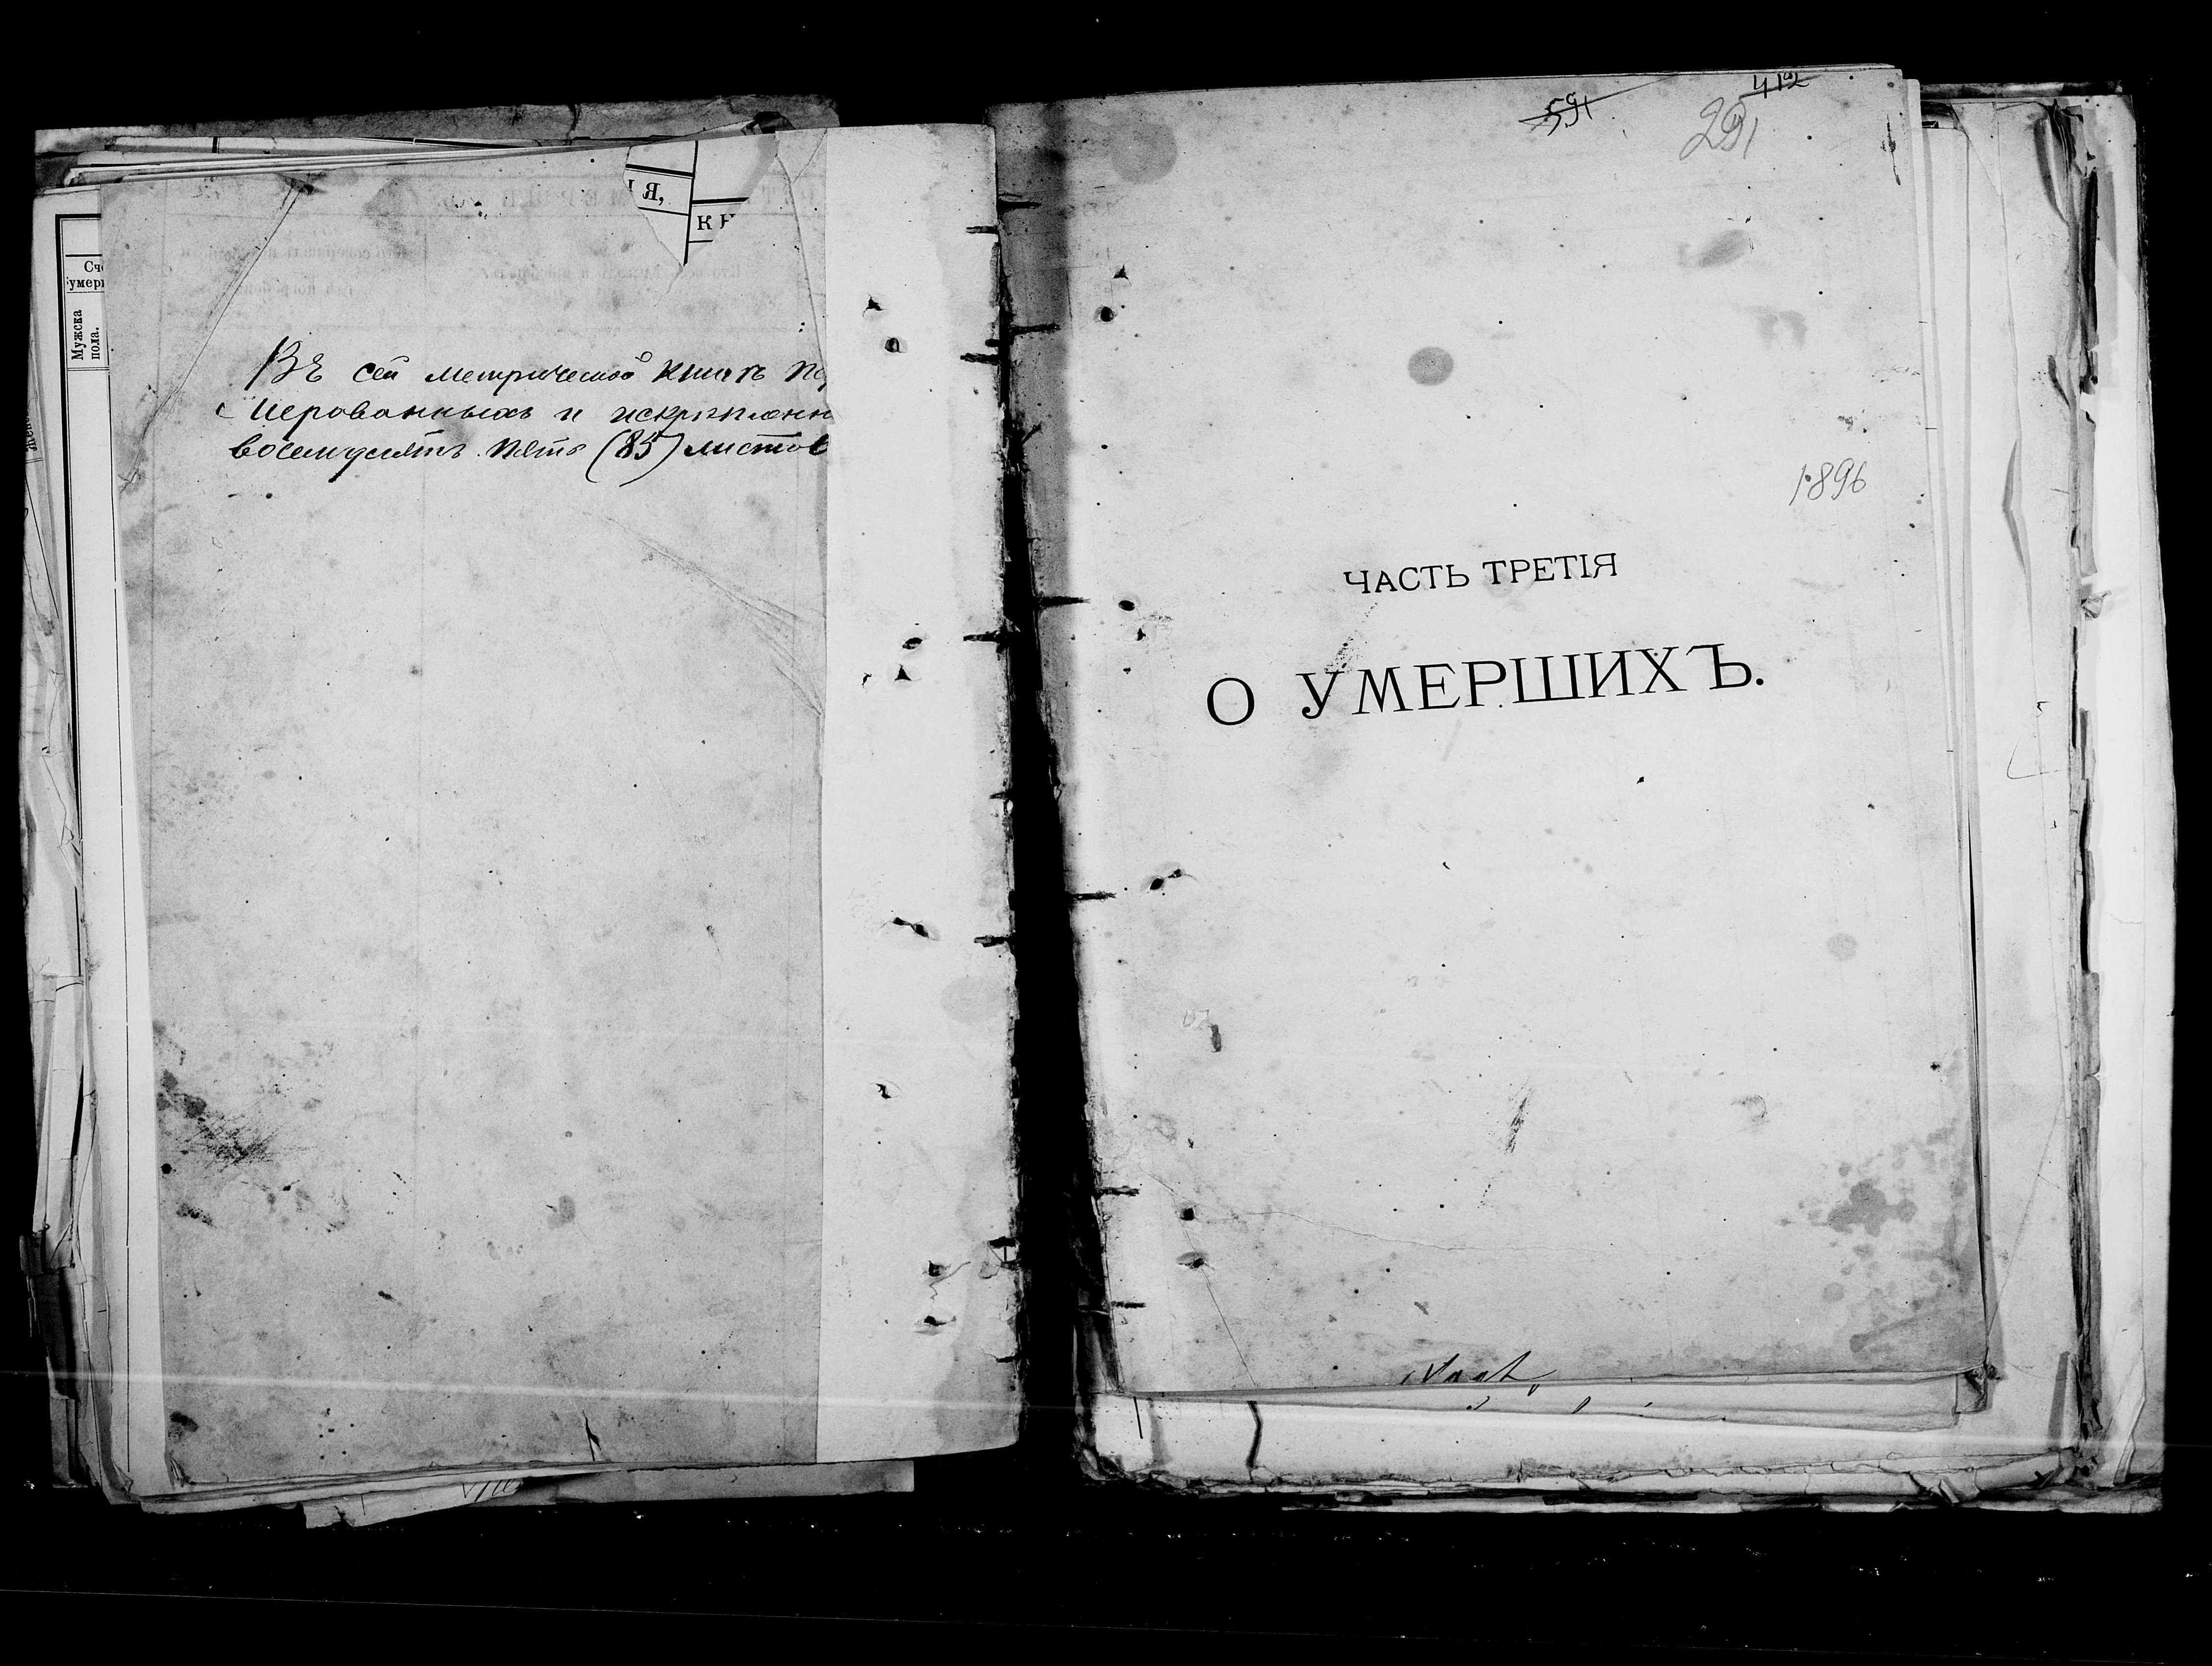 Я,
КН
Сче
умерш
Мужска
пола.
Въ сей метрической книгѣ
мерованныхъ и искрѣпленн
восемдесятъ пять (85) листов
412
591
291
1896
ЧАСТЬ ТРЕТІЯ
О УМЕРШИХЪ.